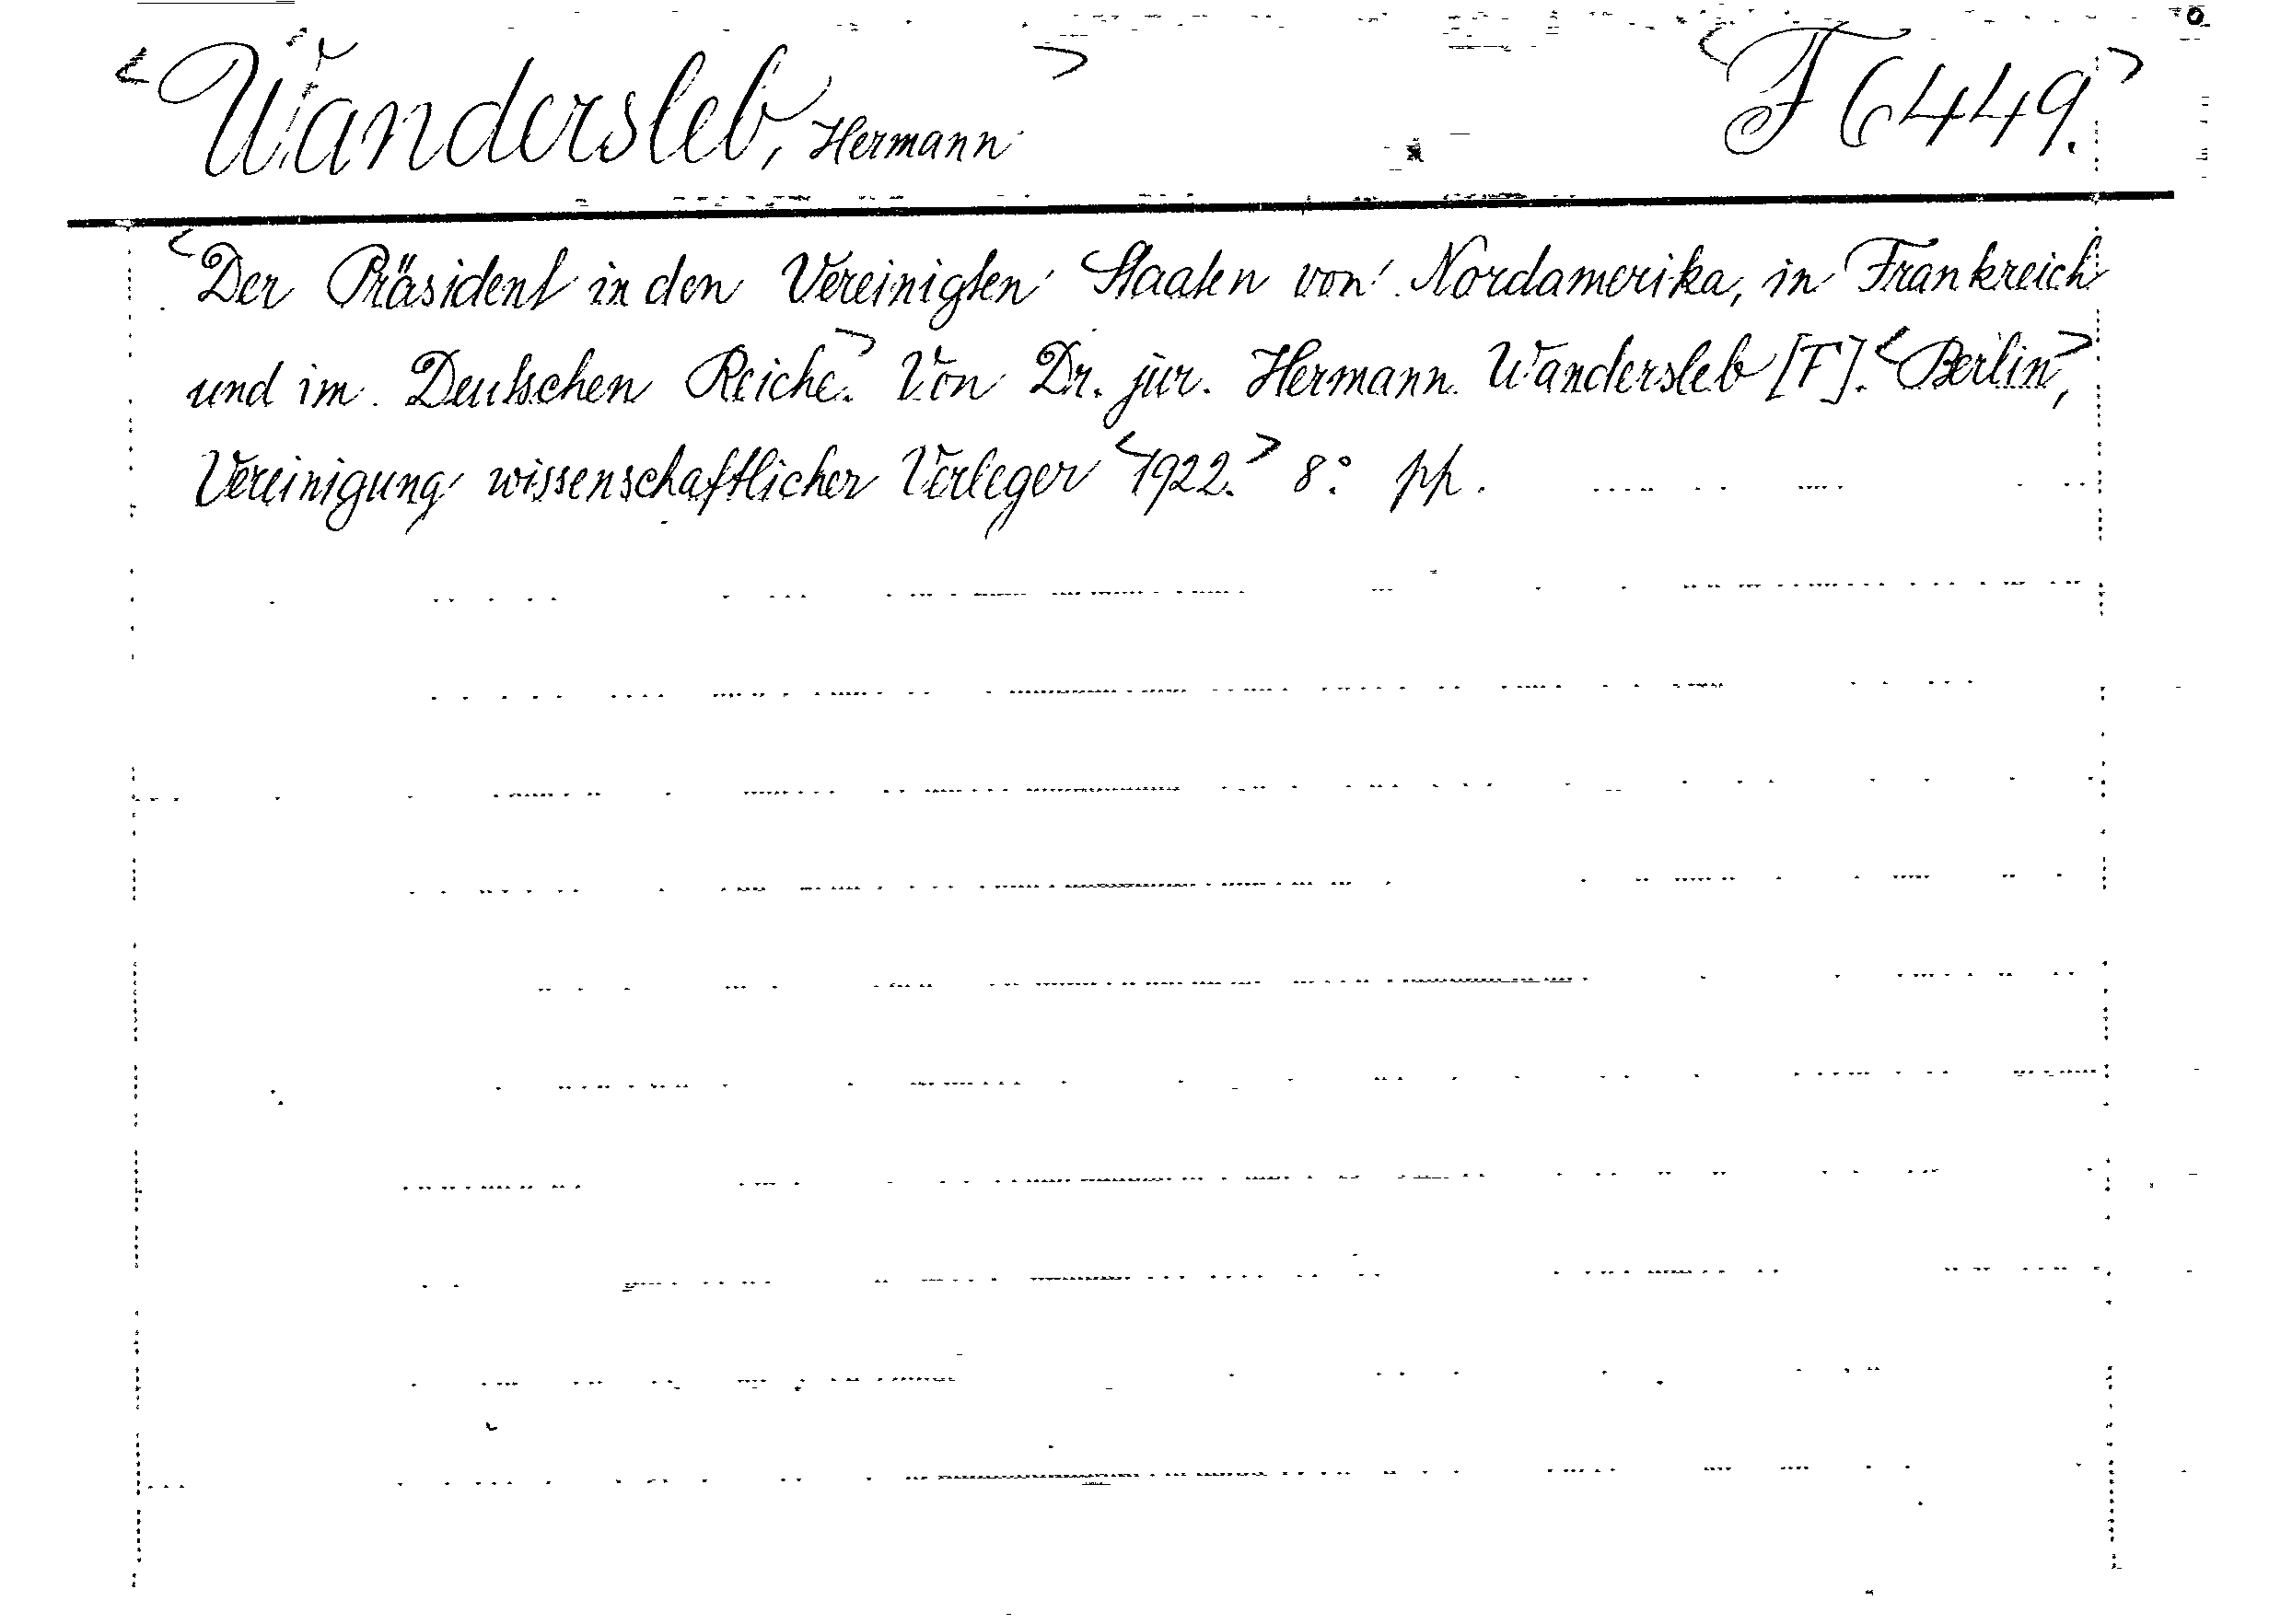 <Wandersleb, Hermann> <F 6449.>
<Der Präsident in den Vereinigten Staaten von Nordamerika, in Frankreich
und im Deutschen Reiche.> Von Dr. jur. Hermann Wandersleb [F]. <Berlin>,
Vereinigung wissenschaftlicher Verleger <1922.> 8° pp.